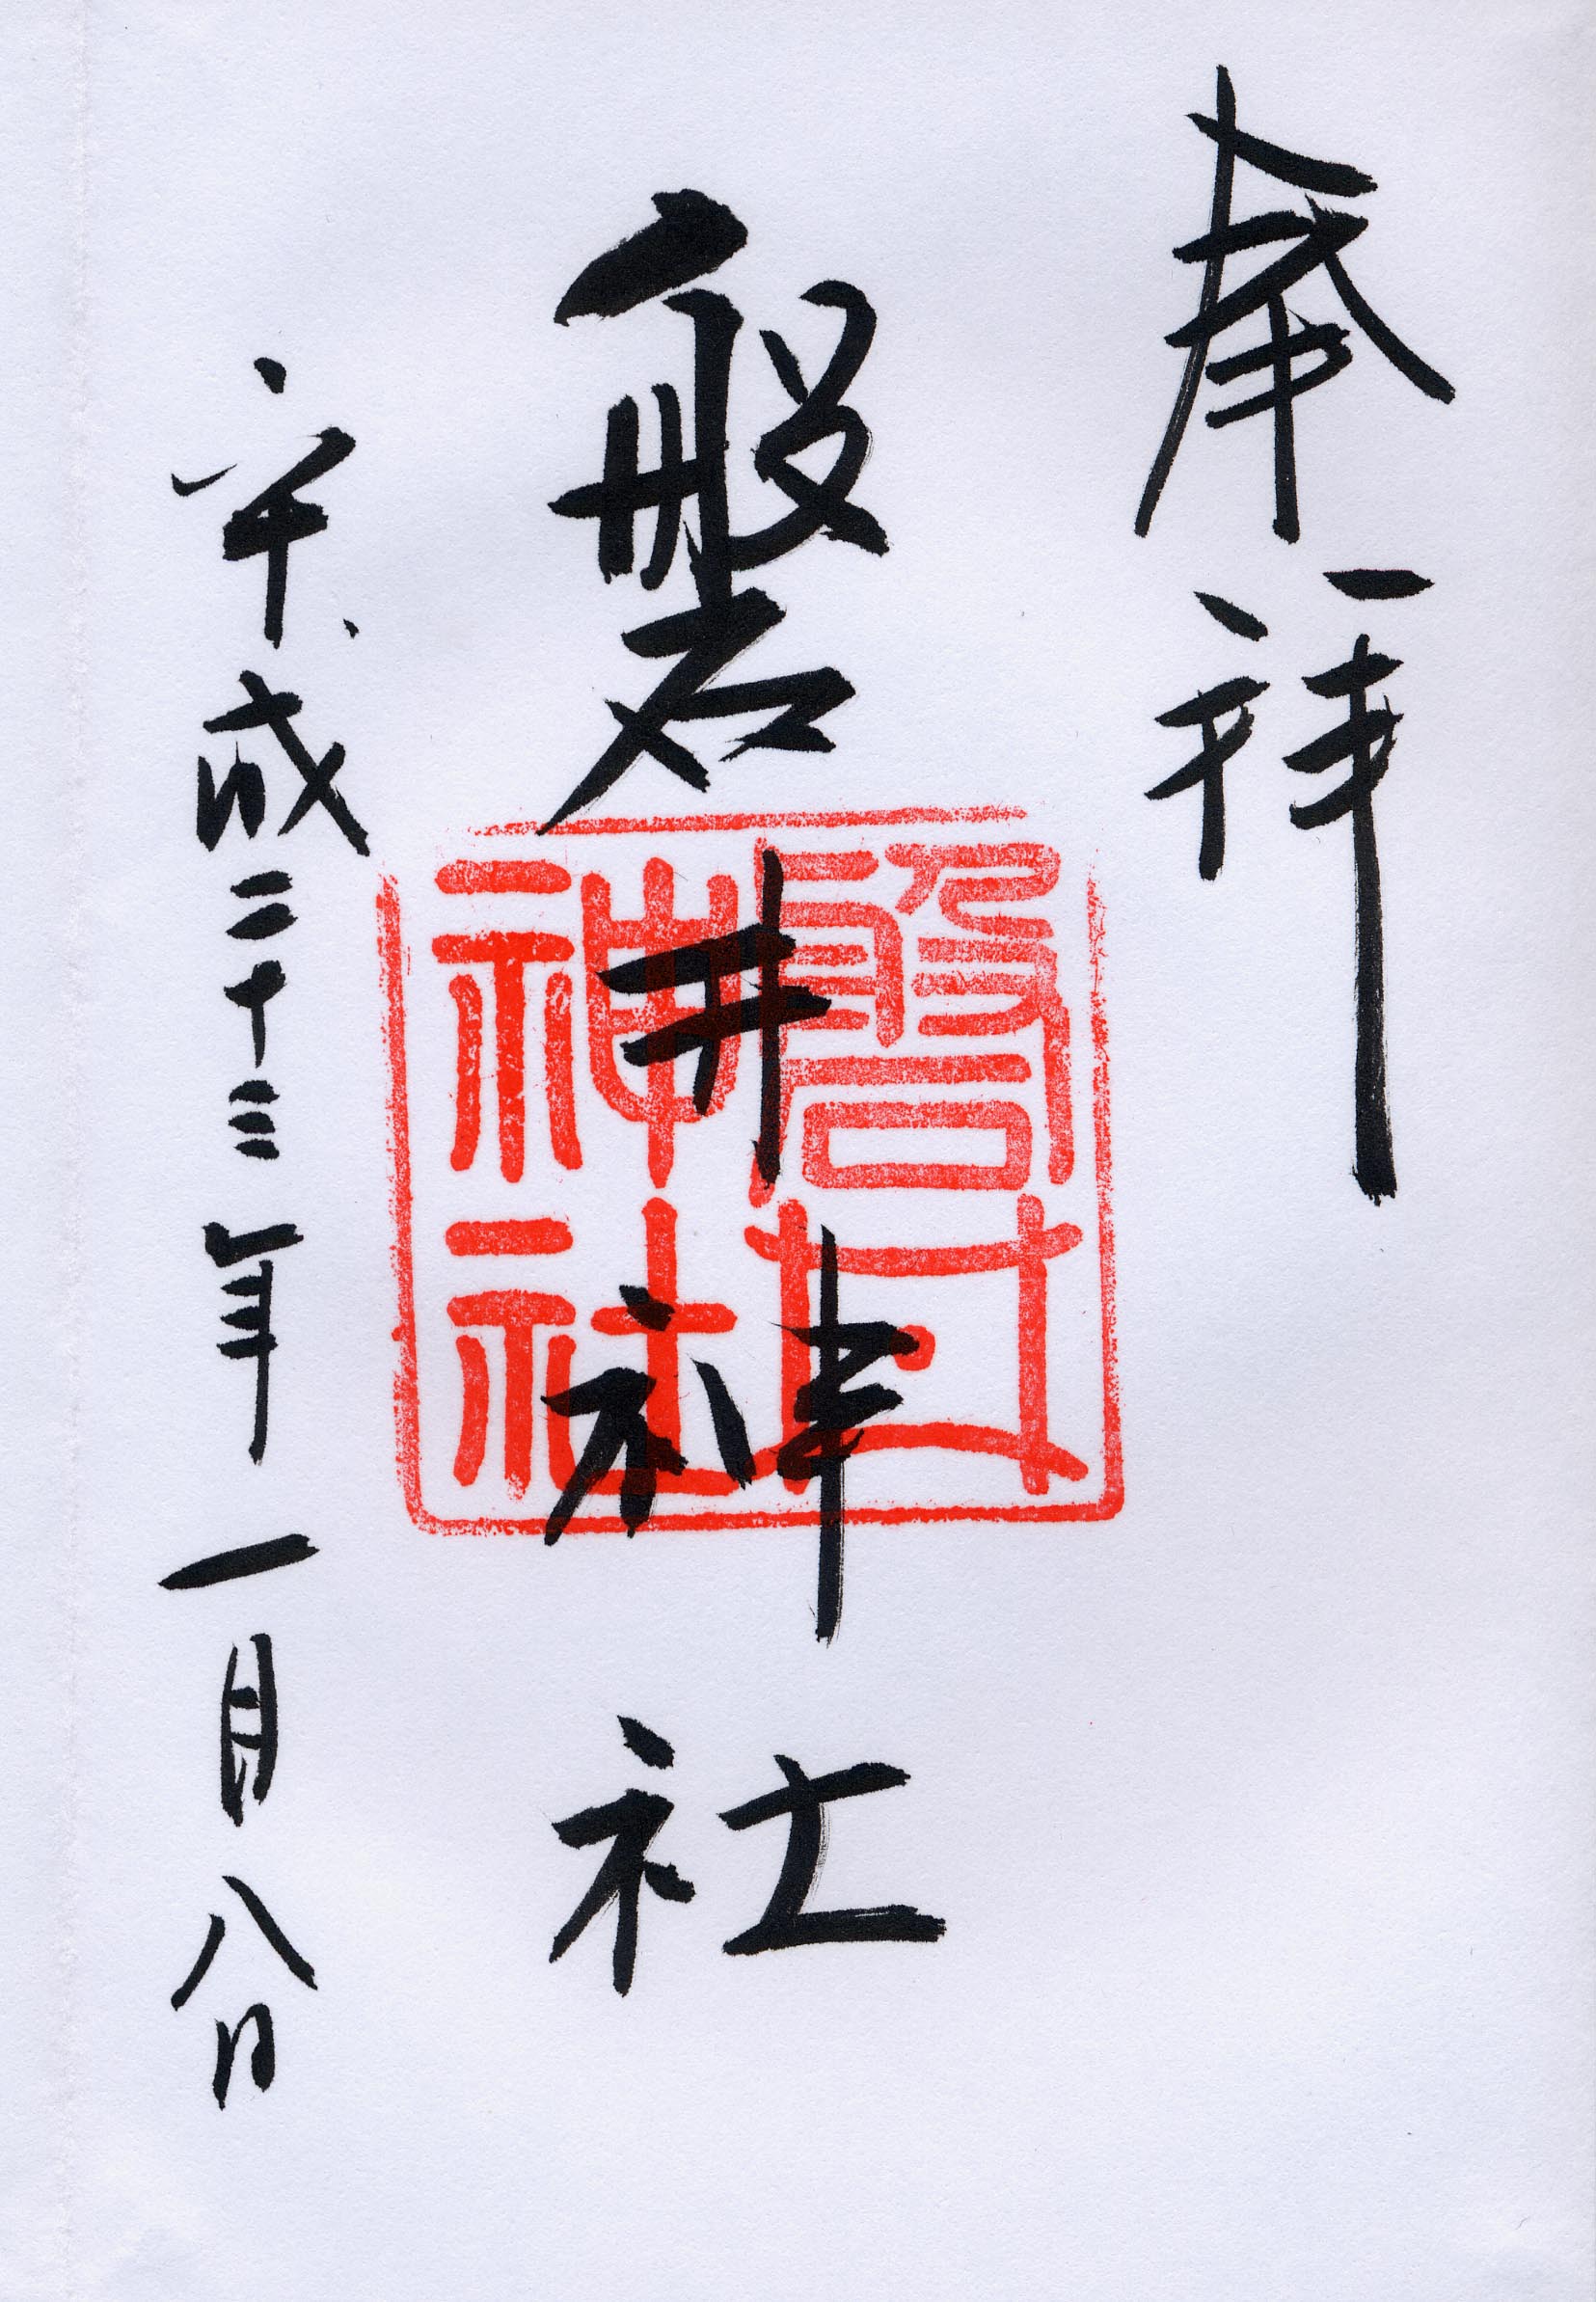 奉拝
磐井神社
磐井
神社
平成二十三年一月八日